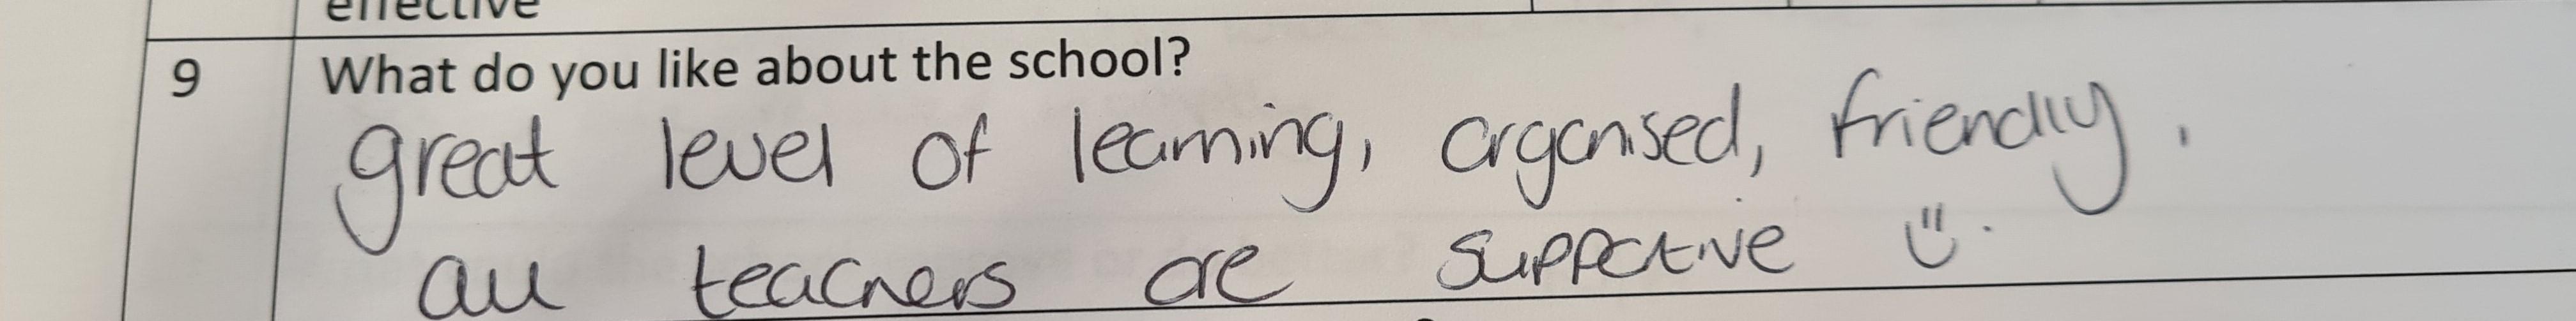 effective
9 What do you like about the school?
great level of learning, organised, friendly.
all teachers are supportive ü.